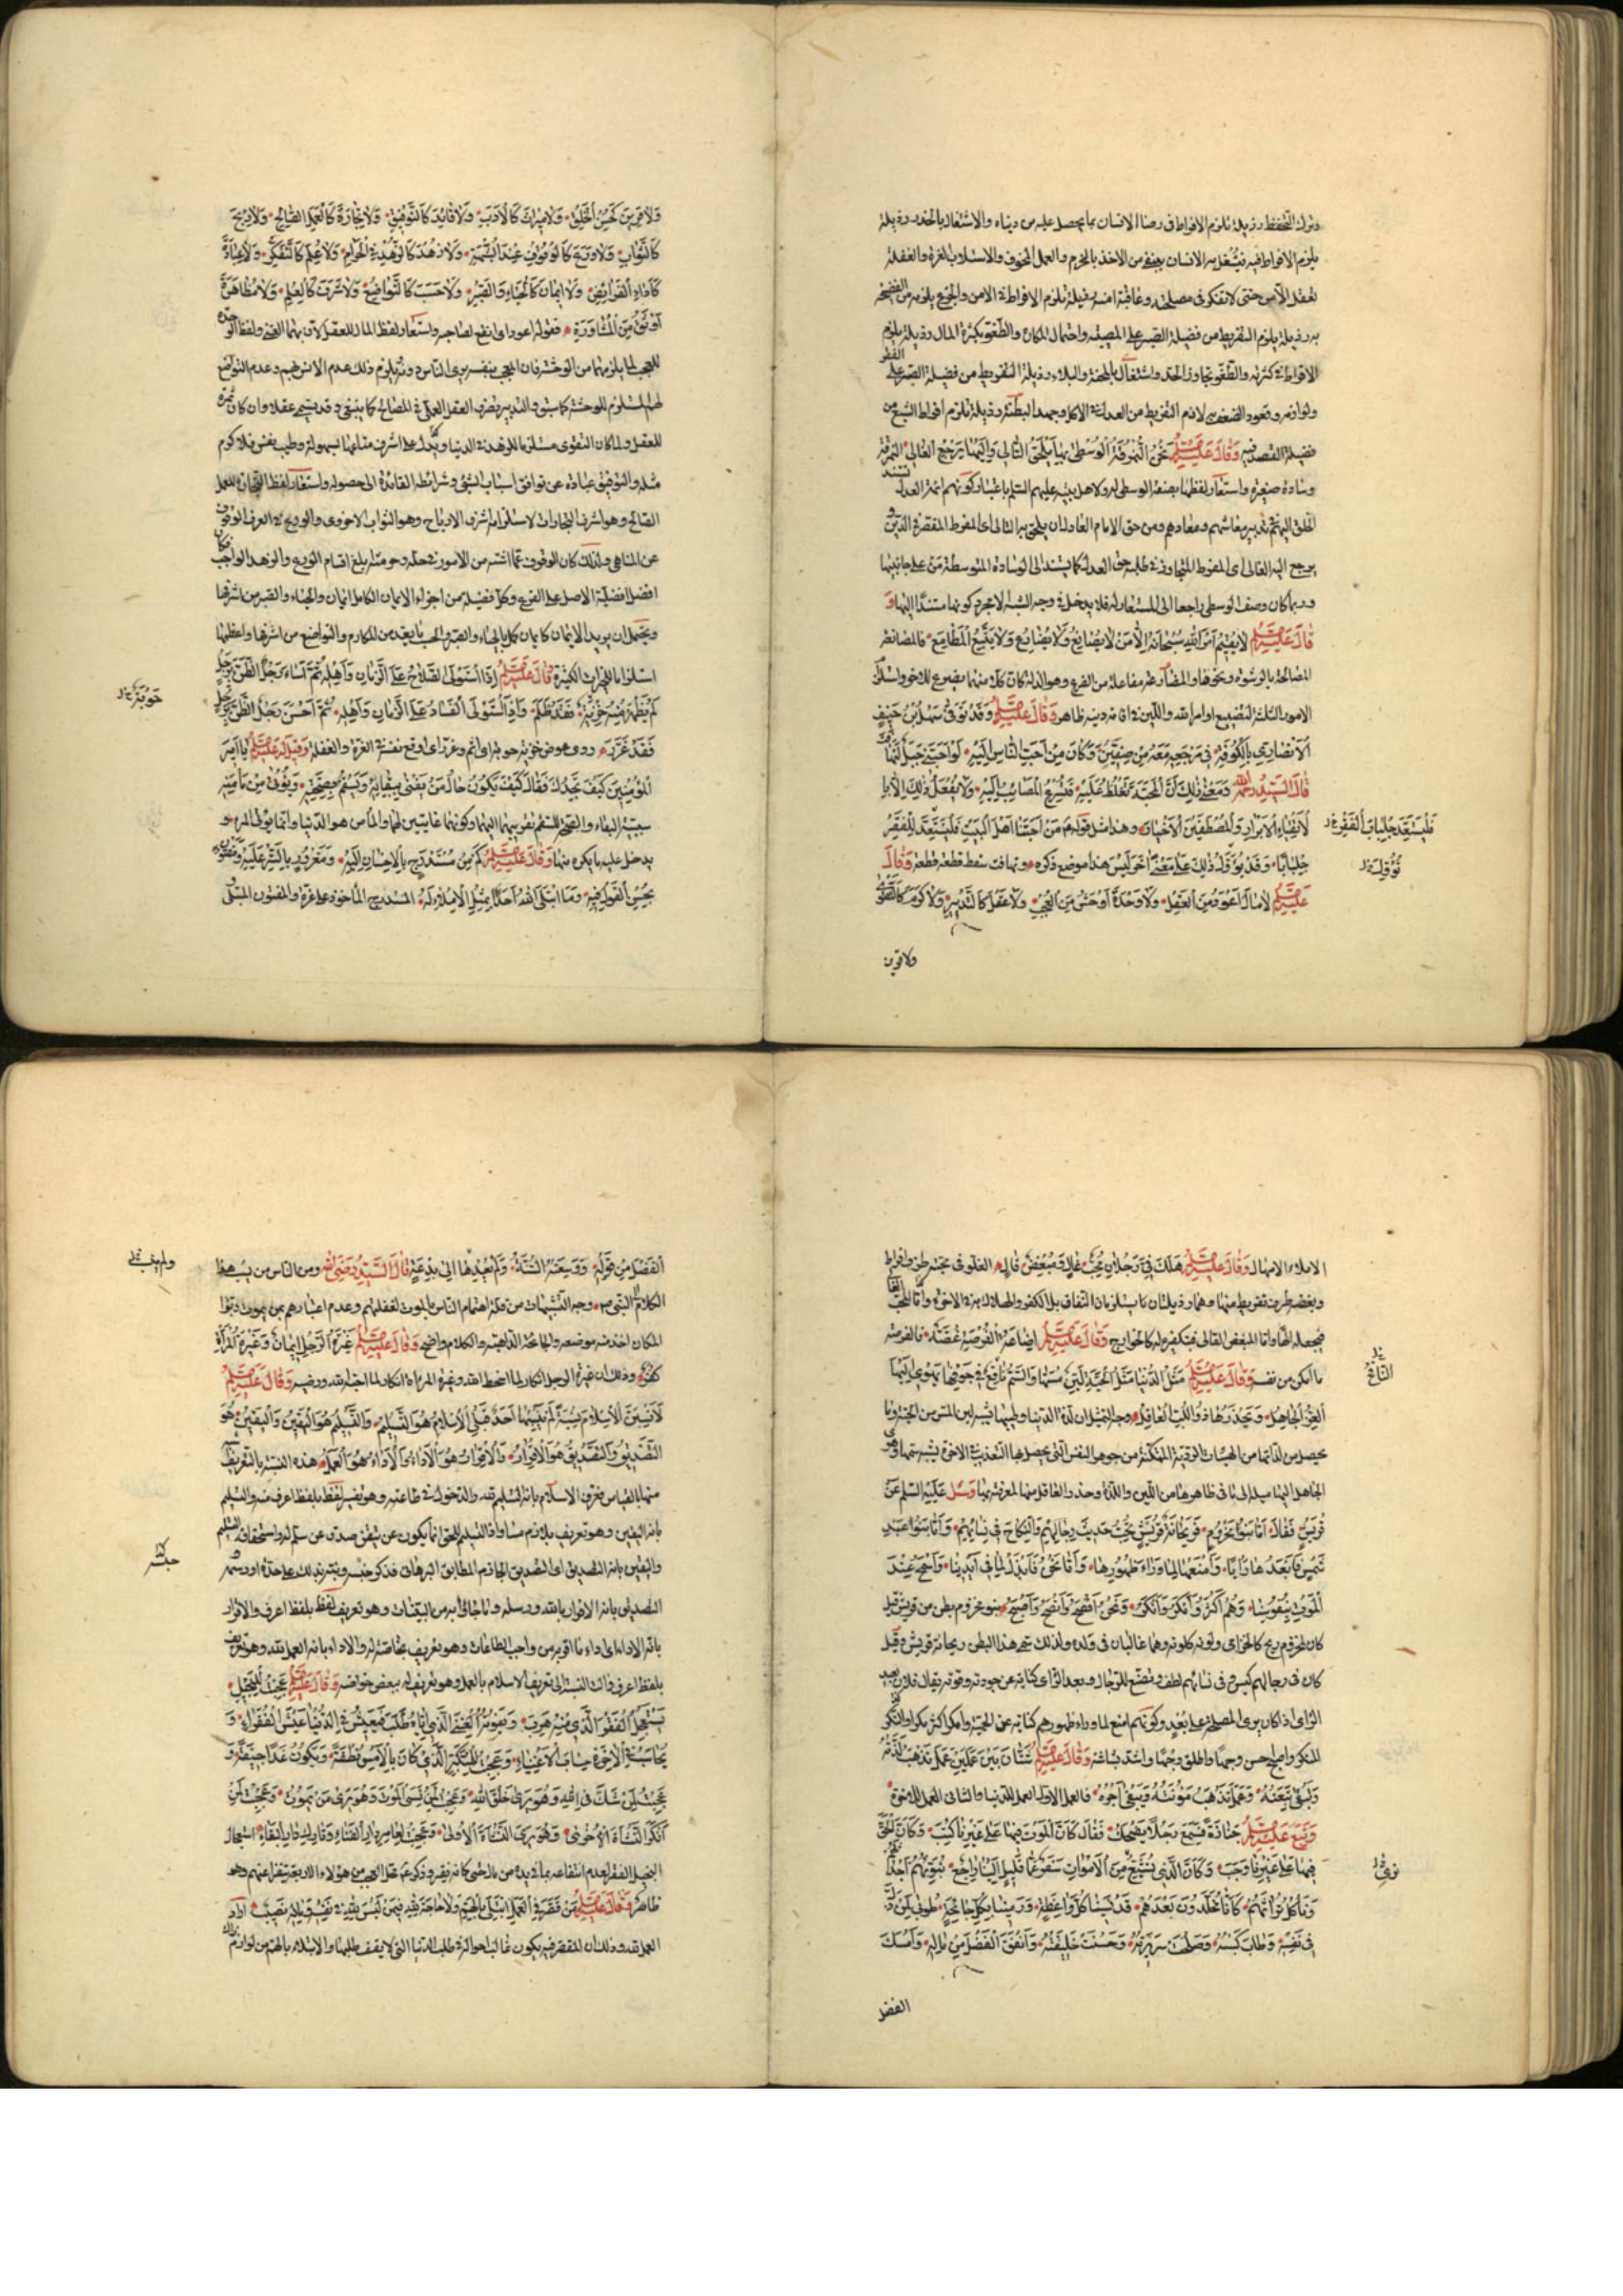 وترك التحفظ رذيلة تلزم الافراط في رضا الانسان بما يحصل عليه من دنياه والاشتغال بالحذر رذيلة
يلزم الافراط فيه فيشغل به الانسان عن الاخذ بالحزم والعمل للمخوف والاستلاب الغرة والغفلة
بعقل الآمن حتى لا يتفكر في مصلحة وعاقبة امنه رذيلة تلزم الافراط في الامن والجزع يلزمه من الفضيحة
به رذيلة يلزم التفريط من فضيلة الصبر على المصيبة واحتمال المكاره والطغو بكثرة المال رذيلة يلزم
الافراط في كثرته والطغو تجاوز الحد واشتغال بالمحنة والبلاء رذيلة التفريط من فضيلة الصبر على الفقر
ولوازمه وقعود الضعف به لازم التفريط من العدل في الاكل وجهد البطنة رذيلة تلزم افراط الشبع من
فضيلة القصد فيه وَقَالَ عَلَيْهِ السَّلَم نَحْنُ النُّمْرُقَةُ الْوُسْطَى بِهَا يَلْحَقُ التَّالِي وَاِلَيْهَا يَرْجِعُ الْغَالِي النمرقة
وسادة صغيرة واستعار لفظها بصفة الوسطى له ولاهل بيته عليهم السلم باعتبار كونهم ائمة العدل يستند
الخلق اليهم في تدبير معاشهم ومعادهم ومن حق الامام العادل ان يلحق به التالى اى المفرط المقصر في الدين و
يرجع اليه الغالى اى المفرط المتجاوز في طلبه حق العدل كما يستند الى الوسادة المتوسطة من على جانبيها
وربما كان وصف الوسطى راجعا الى المستعار له فلا يدخل في وجه الشبه الا مجرد كونها مستندا اليها وَ
قَالَ عَلَيْهِ السَّلَم لَا يُقِيمُ اَمْرَ اللهِ سُبْحَانَهُ اِلَّا مَنْ لَا يُصَانِعُ وَلَا يُضَارِعُ وَلَا يَتَّبِعُ الْمَطَامِعَ فالمصانعة
المصالحة بالرشوة ونحوها والمضارعة مفاعلة من الضرع وهو الذلة كان كلا منهما يضرع للاخر واستلزام
الامور الثلثة لتضييع اوامر الله واللين في اقامة دينه ظاهر وَقَالَ عَلَيْهِ السَّلَم وَقَدْ تُوُفِّيَ سَهْلُ بْنُ حَنِيفٍ
الْاَنْصَارِي بِالْكُوفَةِ فِي مَرْجَعِهِ مَعَهُ مِنْ صِفِّينَ وَكَانَ مِنْ اَحَبِّ النَّاسِ اِلَيْهِ لَوْ اَحَبَّنِي جَبَلٌ لَتَهَافَتَ
قَالَ السَّيِّدُ رَحِمَهُ اللهُ وَمَعْنَى ذٰلِكَ اَنَّ الْمِحْنَةَ تَغْلُظُ عَلَيْهِ فَتُسْرِعُ الْمَصَائِبُ اِلَيْهِ وَلَا يُفْعَلُ ذٰلِكَ اِلَّا بِا
لْاَتْقِيَاءِ الْاَبْرَارِ وَالْمُصْطَفَيْنَ الْاَخْيَارِ وهذا مثل قوله مَنْ اَحَبَّنَا اَهْلَ الْبَيْتِ فَلْيَسْتَعِدَّ لِلْفَقْرِ
جِلْبَابًا وَقَدْ يُؤَوَّلُ ذٰلِكَ عَلَى مَعْنًى اٰخَرَ لَيْسَ هٰذَا مَوْضِعَ ذِكْرِهِ وتهافت سقط قطعة قطعة وَقَالَ
عَلَيْهِ السَّلَم لَا مَالَ اَعْوَدُ مِنَ الْعَقْلِ وَلَا وَحْدَةَ اَوْحَشُ مِنَ الْعُجْبِ وَلَا عَقْلَ كَالتَّدْبِيرِ وَلَا كَرَمَ كَالتَّقْوَى
ولا قرين
فَلْيَسْتَعِدَّ جِلْبَابَ الْفَقْرِ خ ل
وَلَا قَرِينَ كَحُسْنِ الْخُلُقِ وَلَا مِيرَاثَ كَالْاَدَبِ وَلَا قَائِدَ كَالتَّوْفِيقِ وَلَا تِجَارَةَ كَالْعَمَلِ الصَّالِحِ وَلَا رِبْحَ
كَالثَّوَابِ وَلَا وَرَعَ كَالْوُقُوفِ عِنْدَ الشُّبْهَةِ وَلَا زُهْدَ كَالزُّهْدِ فِي الْحَرَامِ وَلَا عِلْمَ كَالتَّفَكُّرِ وَلَا عِبَادَةَ
كَاَدَاءِ الْفَرَائِضِ وَلَا اِيمَانَ كَالْحَيَاءِ وَالصَّبْرِ وَلَا حَسَبَ كَالتَّوَاضُعِ وَلَا شَرَفَ كَالْعِلْمِ وَلَا مُظَاهَرَةَ
اَوْثَقُ مِنَ الْمُشَاوَرَةِ فقوله اعود اى انفع لصاحبه واستعار لفظ المال للعقل لان بهما الغنى ولفظ الوحدة
للعجب لما يلزمهما من الوحشة فان المعجب بنفسه يرى الناس دونه ويلزم ذلك عدم الانس بهم وعدم التواضع
لهم المستلزم للوحشة كما سبق والتدبير تصرف العقل العملى في المصالح كما ينبغى وقد يسمى عقلا وان كان ثمرة
للعقل ولما كان التقوى مستلزما للزهد في الدنيا وترك على اشرف متاعها بسهولة وطيب نفس فلا كرم
مثله والتوفيق عبارة عن توافق اسباب الشئ وشرائطه القائدة الى حصوله واستعار لفظ التجارة للعمل
الصالح وهو اشرف التجارات لاستلزامه اشرف الارباح وهو الثواب الاخروى والورع في العرف الوقوف
عن المناهى ولذلك كان الوقوف عما اشتبه من الامور في حله وحرمته بلغ اقسام الورع والزهد الواجب
افضل افضلية الاصل على الفرع وكل فضيلة من اجزاء الايمان الكامل ايمان والحياء والصبر من اشرفها
ويحتمل ان يريد لا ايمان كايمان كمل بالحياء والصبر والحسب ما يعد من المكارم والتواضع من اشرفها واعظمها
استلزاما للخيرات الكثيرة قَالَ عَلَيْهِ السَّلَم اِذَا اسْتَوْلَى الصَّلَاحُ عَلَى الزَّمَانِ وَاَهْلِهِ ثُمَّ اَسَاءَ رَجُلٌ الظَّنَّ بِرَجُلٍ
لَمْ تَظْهَرْ مِنْهُ خِزْيَةٌ فَقَدْ ظَلَمَ وَاِذَا اسْتَوْلَى الْفَسَادُ عَلَى الزَّمَانِ وَاَهْلِهِ ثُمَّ اَحْسَنَ رَجُلٌ الظَّنَّ بِرَجُلٍ
فَقَدْ غَرَّرَ وروى عوض خزية حوبة اى اثم وغرر اى اوقع نفسه في الغرة والغفلة وَقِيلَ لَهُ عَلَيْهِ السَّلَم يَا اَمِيرَ
الْمُؤْمِنِينَ كَيْفَ تَجِدُكَ فَقَالَ كَيْفَ يَكُونُ حَالُ مَنْ يَفْنَى بِبَقَائِهِ وَيَسْقَمُ بِصِحَّتِهِ وَيُؤْتَى مِنْ مَأْمَنِهِ
سببية البقاء والصحة للسقم تقريبهما اليهما وكونهما غايتين لهما والمأمن هو الدنيا وانما يؤتى المرء و
يدخل عليه ما يكره منها وَقَالَ عَلَيْهِ السَّلَم كَمْ مِنْ مُسْتَدْرَجٍ بِالْاِحْسَانِ اِلَيْهِ وَمَغْرُورٍ بِالسَّتْرِ عَلَيْهِ وَمَفْتُونٍ
بِحُسْنِ الْقَوْلِ فِيهِ وَمَا ابْتَلَى اللهُ اَحَدًا بِمِثْلِ الْاِمْلَاءِ لَهُ المستدرج المأخوذ على غرة والمفتون المبتلى
حَوْبَةٌ خ ل
الاملاء الامهال وَقَالَ عَلَيْهِ السَّلَم هَلَكَ فِيَّ رَجُلَانِ مُحِبٌّ غَالٍ وَمُبْغِضٌ قَالٍ الغلو في محبته طرف افراط
وبغضه طرف تفريط منهما وهما رذيلتان يستلزمان الكفر والهلاك به في الاخرة واما المحب الغالى
فيجعله الها واما المبغض القالى فبتكفيره له كالخوارج وَقَالَ عَلَيْهِ السَّلَم اِضَاعَةُ الْفُرْصَةِ غُصَّةٌ فالفرصة
ما امكن من نفسه وَقَالَ عَلَيْهِ السَّلَم مَثَلُ الدُّنْيَا مَثَلُ الْحَيَّةِ لَيِّنٌ مَسُّهَا وَالسَّمُّ نَاقِعٌ فِي جَوْفِهَا يَهْوِي اِلَيْهَا
الْغِرُّ الْجَاهِلُ وَيَحْذَرُهَا ذُو اللُّبِّ الْعَاقِلُ وجه التمثيل ان لذة الدنيا وطيبها يشبه لين المس من الحية وما
يحصل من لذاتها من الهيئات الردية المتمكنة من جوهر النفس التى يحصل بها التعذيب في الاخرة يشبه سمها
الجاهل اليها ميله الى ما في ظاهرها من اللين واللذة وحذر العاقل منها لمعرفته بها وَسُئِلَ عَلَيْهِ السَّلَم عَنْ
قُرَيْشٍ فَقَالَ اَمَّا بَنُو مَخْزُومٍ فَرَيْحَانَةُ قُرَيْشٍ تُحِبُّ حَدِيثَ رِجَالِهِمْ وَالنِّكَاحَ فِي نِسَائِهِمْ وَاَمَّا بَنُو عَبْدِ
شَمْسٍ فَاَبْعَدُهَا رَأْيًا وَاَمْنَعُهَا لِمَا وَرَاءَ ظُهُورِهَا وَاَمَّا نَحْنُ فَاَبْذَلُ لِمَا فِي اَيْدِينَا وَاَسْمَحُ عِنْدَ
الْمَوْتِ بِنُفُوسِنَا وَهُمْ اَكْثَرُ وَاَمْكَرُ وَاَنْكَرُ وَنَحْنُ اَفْصَحُ وَاَنْصَحُ وَاَصْبَحُ بنو مخزوم بطن من قريش قيل
كان لمخزوم ريح كالخزامى ولون كلونه وهما غالبان في ولده ولذلك سمى هذا البطن ريحانة قريش وقيل
كان في رجالهم كيس وفي نسائهم لطف وتصنع للرجال وبعد الراى كناية عن جودته وقوته يقال فلان بعيد
الراى اذا كان يرى المصلحة على بعد وكونهم امنع لما وراء ظهورهم كناية عن الحمية وامكر اكثر مكرا والنكر
المنكر واصبح احسن وجها واطلق وجها واشد بشاشة وَقَالَ عَلَيْهِ السَّلَم شَتَّانَ بَيْنَ عَمَلَيْنِ عَمَلٍ تَذْهَبُ لَذَّتُهُ
وَتَبْقَى تَبِعَتُهُ وَعَمَلٍ تَذْهَبُ مَؤُنَتُهُ وَيَبْقَى اَجْرُهُ فالعمل الاول العمل للدنيا والثانى العمل للاخرة
وَتَبِعَ عَلَيْهِ السَّلَم جَنَازَةً فَسَمِعَ رَجُلًا يَضْحَكُ فَقَالَ كَاَنَّ الْمَوْتَ فِيهَا عَلَى غَيْرِنَا كُتِبَ وَكَاَنَّ الْحَقَّ
فِيهَا عَلَى غَيْرِنَا وَجَبَ وَكَاَنَّ الَّذِي نُشَيِّعُ مِنَ الْاَمْوَاتِ سَفْرٌ عَمَّا قَلِيلٍ اِلَيْنَا رَاجِعُونَ نُبَوِّئُهُمْ اَجْدَاثَهُمْ
وَنَأْكُلُ تُرَاثَهُمْ كَاَنَّا مُخَلَّدُونَ بَعْدَهُمْ قَدْ نَسِينَا كُلَّ وَاعِظَةٍ وَرُمِينَا بِكُلِّ جَائِحَةٍ طُوبَى لِمَنْ ذَلَّ
فِي نَفْسِهِ وَطَابَ كَسْبُهُ وَصَلُحَتْ سَرِيرَتُهُ وَحَسُنَتْ خَلِيقَتُهُ وَاَنْفَقَ الْفَضْلَ مِنْ مَالِهِ وَاَمْسَكَ
الفضل
الْفَضْلَ مِنْ قَوْلِهِ وَوَسِعَتْهُ السُّنَّةُ وَلَمْ يَعْدُهَا اِلَى بِدْعَةٍ قَالَ السَّيِّدُ رَضِيَ اللهُ ومن الناس من ينسب هذا
الكلام الى النبى ص وجه التشبيهات من قلة اهتمام الناس بالموت لغفلتهم وعدم اعتبارهم بمن يموت
المكان اخذته موضعه والجائحة الداهية والكلام واضح وَقَالَ عَلَيْهِ السَّلَم غَيْرَةُ الرَّجُلِ اِيمَانٌ وَغَيْرَةُ الْمَرْأَةِ
كُفْرٌ وذلك ان غيرة الرجل انكار لما اسخط الله وغيرة المرأة انكار لما احبه الله ورضيه وَقَالَ عَلَيْهِ السَّلَم
لَاَنْسُبَنَّ الْاِسْلَامَ نِسْبَةً لَمْ يَنْسُبْهَا اَحَدٌ قَبْلِي الْاِسْلَامُ هُوَ التَّسْلِيمُ وَالتَّسْلِيمُ هُوَ الْيَقِينُ وَالْيَقِينُ هُوَ
التَّصْدِيقُ وَالتَّصْدِيقُ هُوَ الْاِقْرَارُ وَالْاِقْرَارُ هُوَ الْاَدَاءُ وَالْاَدَاءُ هُوَ الْعَمَلُ هذه النسبة بالتعريف
منها بالقياس فعرف الاسلام بانه التسليم لله والدخول في طاعته وهو تفسير لفظ بلفظ اعرف منه والتسليم
بانه اليقين وهو تعريف بلازم مساو اذ التسليم للحق انما يكون عن تيقن صدق من سلم له واستحقاقه التسليم
واليقين بانه التصديق اى التصديق الجازم المطابق البرهانى فذكر جنسه ونبه بذلك على حده او رسمه
التصديق بانه الاقرار بالله ورسله وما جاؤا به من البينات وهو تعريف لفظ بلفظ اعرف والاقرار
بانه الاداء اى اداء ما اقر به من واجب الطاعات وهو تعريف بخاصة له والاداء بانه العمل لله وهو تعريف
بلفظ اعرف وآلت النسبة الى تعريف الاسلام بالعمل وهو تعريف له ببعض خواصه وَقَالَ عَلَيْهِ السَّلَم عَجِبْتُ لِلْبَخِيلِ
يَسْتَعْجِلُ الْفَقْرَ الَّذِي مِنْهُ هَرَبَ وَيَفُوتُهُ الْغِنَى الَّذِي اِيَّاهُ طَلَبَ فَيَعِيشُ فِي الدُّنْيَا عَيْشَ الْفُقَرَاءِ وَ
يُحَاسَبُ فِي الْاٰخِرَةِ حِسَابَ الْاَغْنِيَاءِ وَعَجِبْتُ لِلْمُتَكَبِّرِ الَّذِي كَانَ بِالْاَمْسِ نُطْفَةً وَيَكُونُ غَدًا جِيفَةً وَ
عَجِبْتُ لِمَنْ شَكَّ فِي اللهِ وَهُوَ يَرَى خَلْقَ اللهِ وَعَجِبْتُ لِمَنْ نَسِيَ الْمَوْتَ وَهُوَ يَرَى مَنْ يَمُوتُ وَعَجِبْتُ لِمَنْ
اَنْكَرَ النَّشْأَةَ الْاُخْرَى وَهُوَ يَرَى النَّشْأَةَ الْاُولَى وَعَجِبْتُ لِعَامِرِ دَارِ الْفَنَاءِ وَتَارِكِ دَارِ الْبَقَاءِ استعجال
البخيل الفقر لعدم انتفاعه بما في يده من مال حتى كانه فقير وذكر محل العجب من هؤلاء الاربعة تنفيرا عنهم وهو
ظاهر وَقَالَ عَلَيْهِ السَّلَم مَنْ قَصَّرَ فِي الْعَمَلِ ابْتُلِيَ بِالْهَمِّ وَلَا حَاجَةَ لِلّٰهِ فِيمَنْ لَيْسَ لِلّٰهِ فِي نَفْسِهِ وَمَالِهِ نَصِيبٌ اراد
العمل لله وذلك ان المقصر فيه يكون غالب احواله في طلب الدنيا التى لا يقف طلبها والابتلاء بالهم من لوازم ذلك